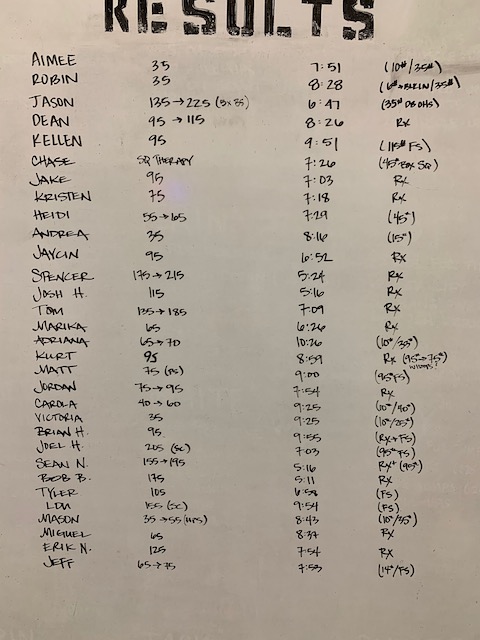 RESULTS
AIMEE 35 7:51 (10#/35#)
ROBIN 35 8:28 (6#→BRLN/35#)
JASON 135→225 (Bx BS) 6:47 (35# DB OHS)
DEAN 95→115 8:26 Rx
KELLEN 95 9:51 (115# FS)
CHASE SQ THERAPY 7:26 (45# BOX SQ)
JAKE 95 7:03 Rx
KRISTEN 75 7:18 Rx
HEIDI 55→65 7:29 (45#)
ANDREA 35 8:16 (15#)
JAYCIN 95 6:52 Rx
SPENCER 175→215 5:24 Rx
JOSH H. 115 5:16 Rx
TOM 135→185 7:09 Rx
MARIKA 65 6:26 Rx
ADRIANA 65→70 10:26 (10#/35#)
KURT 95 8:59 Rx (95#→75# WHOOPS?)
MATT 75 (SC) 9:00 (95# FS)
JORDAN 75→95 7:54 Rx
CAROLA 40→60 9:25 (10#/40#)
VICTORIA 35 9:25 (10#/25#)
BRIAN H. 95 9:55 (Rx+FS)
JOEL H. 205 (SC) 7:03 (95# FS)
SEAN N. 155→195 5:16 Rx+ (95#)
BOB B. 175 5:11 Rx
TYLER 105 6:58 (FS)
LDU 155 (SC) 9:54 (FS)
MASON 35→55 (HPS) 8:43 (10#/35#)
MIGUEL 65 8:37 Rx
ERIK N. 125 7:54 Rx
JEFF 65→75 7:53 (14#/FS)